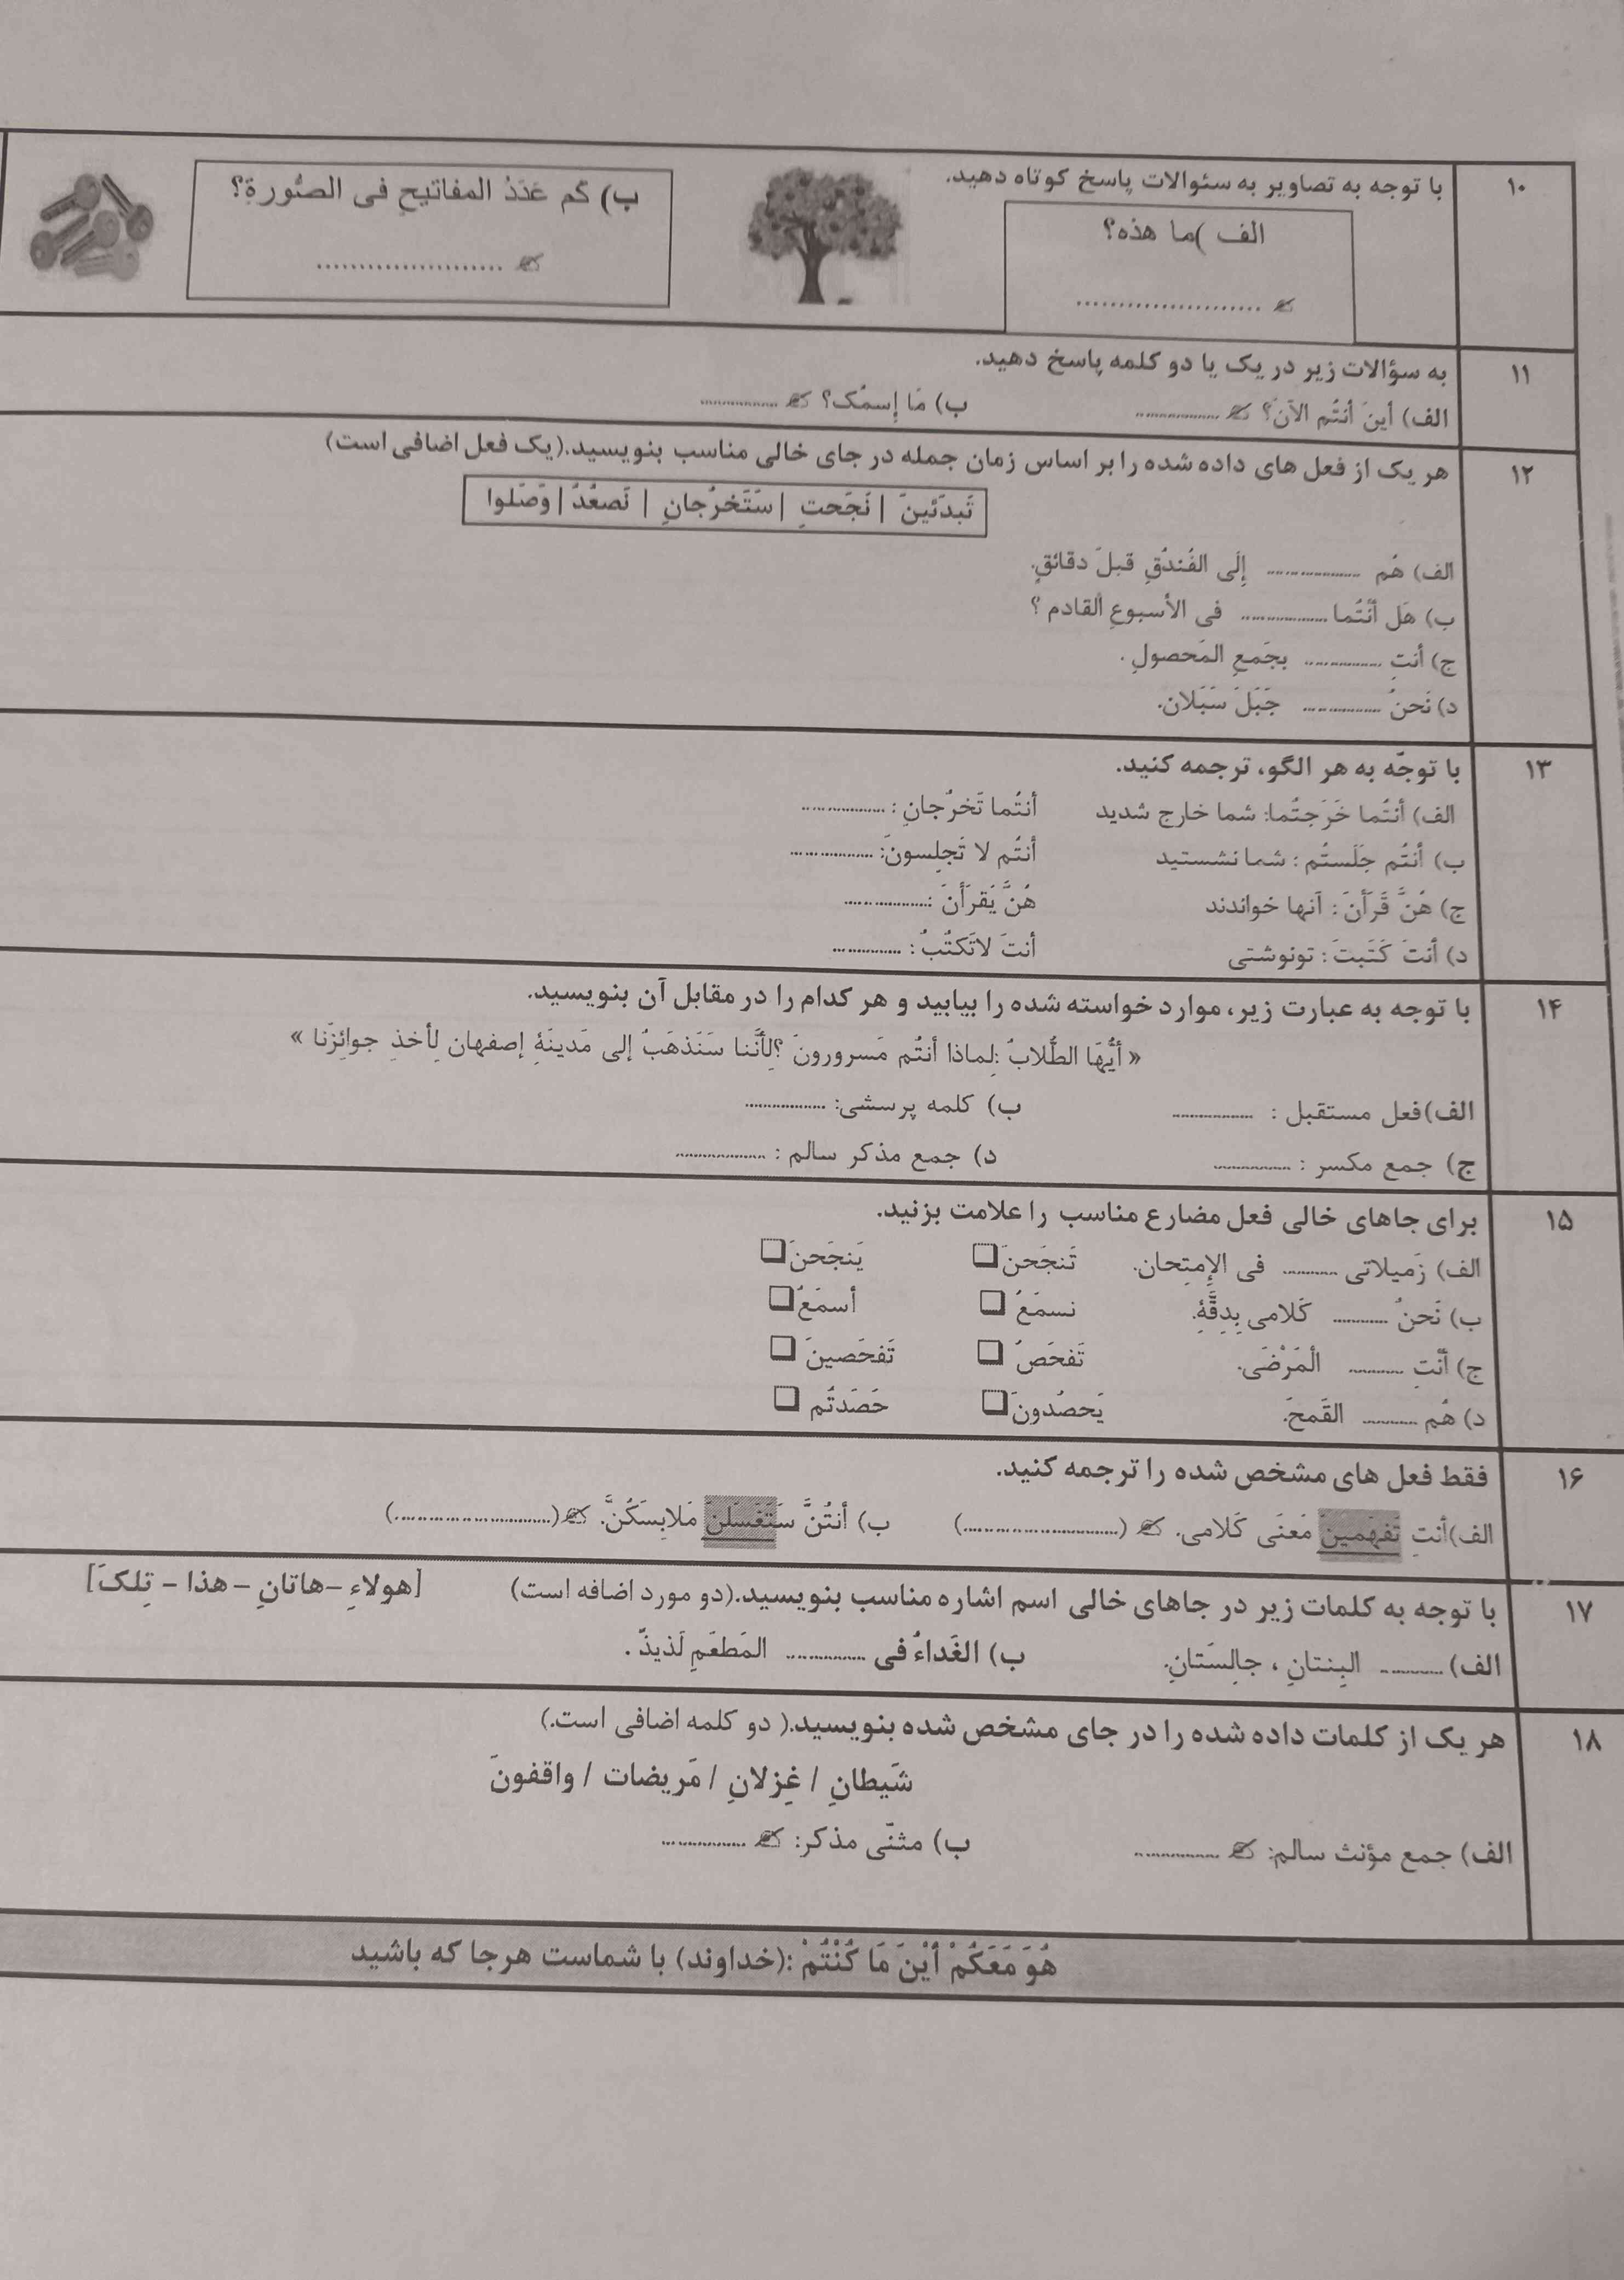 ۱۰
با توجه به تصاویر به سئوالات پاسخ کوتاه دهید.
الف )ما هذه؟
.......................
ب) کَم عَدَدُ المفاتیحِ فی الصّورةِ؟
.......................
۱۱
به سؤالات زیر در یک یا دو کلمه پاسخ دهید.
الف) أینَ أنتُم الآنَ؟ ................ ب) مَا إسمُک؟ ................
۱۲
هر یک از فعل های داده شده را بر اساس زمان جمله در جای خالی مناسب بنویسید.(یک فعل اضافی است)
تَبدَئینَ | نَجَحتِ | سَتَخرُجانِ | نَصعُدُ | وَصَلوا
الف) هُم ................ إلَی الفُندُقِ قبلَ دقائقٍ.
ب) هَل أنتُما ................ فی الأسبوعِ القادم ؟
ج) أنتِ ................ بجَمعِ المَحصولِ .
د) نَحنُ ................ جَبَلَ سَبَلان.
۱۳
با توجّه به هر الگو، ترجمه کنید.
الف) أنتُما خَرَجتُما: شما خارج شدید أنتُما تَخرُجانِ : ................
ب) أنتُم جَلَستُم : شما نشستید أنتُم لا تَجلِسونَ: ................
ج) هُنَّ قَرَأنَ : آنها خواندند هُنَّ یَقرَأنَ : ................
د) أنتَ کَتَبتَ : تونوشتی أنتَ لاتَکتُبُ : ................
۱۴
با توجه به عبارت زیر، موارد خواسته شده را بیابید و هر کدام را در مقابل آن بنویسید.
« أیُّهَا الطُّلابُ :لِماذا أنتُم مَسرورونَ ؟لِأنَّنا سَنَذهَبُ إلی مَدینَةِ إصفهان لِأخذِ جوائِزَنا »
الف)فعل مستقبل : ................ ب) کلمه پرسشی: ................
ج) جمع مکسر : ................ د) جمع مذکر سالم : ................
۱۵
برای جاهای خالی فعل مضارع مناسب را علامت بزنید.
الف) زَمیلاتی ........... فی الإمتِحان. تَنجَحنَ❏ یَنجَحنَ❏
ب) نَحنُ ........... کَلامی بِدِقَّةِ. نسمَعُ ❏ أسمَعُ❏
ج) أنْتِ ........... الْمَرْضَی. تَفحَصُ ❏ تَفحَصینَ ❏
د) هُم ........... القَمحَ. یَحصُدونَ❏ حَصَدتُم ❏
۱۶
فقط فعل های مشخص شده را ترجمه کنید.
الف)أنتِ تَفهَمینَ مَعنَی کَلامی. (..........................) ب) أنتُنَّ سَتَغسَلنَ مَلابِسَکُنَّ. (..........................)
۱۷
با توجه به کلمات زیر در جاهای خالی اسم اشاره مناسب بنویسید.(دو مورد اضافه است) [هولاءِ -هاتانِ - هذا - تِلکَ]
الف) ............ البِنتانِ ، جالِسَتانِ. ب) الغَداءُ فی ............... المَطعَمِ لَذیذٌ .
۱۸
هر یک از کلمات داده شده را در جای مشخص شده بنویسید.( دو کلمه اضافی است.)
شَیطانِ / غِزلانِ / مَریضات / واقفونَ
الف) جمع مؤنث سالم: ................ ب) مثنّی مذکر: ................
هُوَ مَعَکُمْ أَیْنَ مَا کُنْتُمْ :(خداوند) با شماست هرجا که باشید